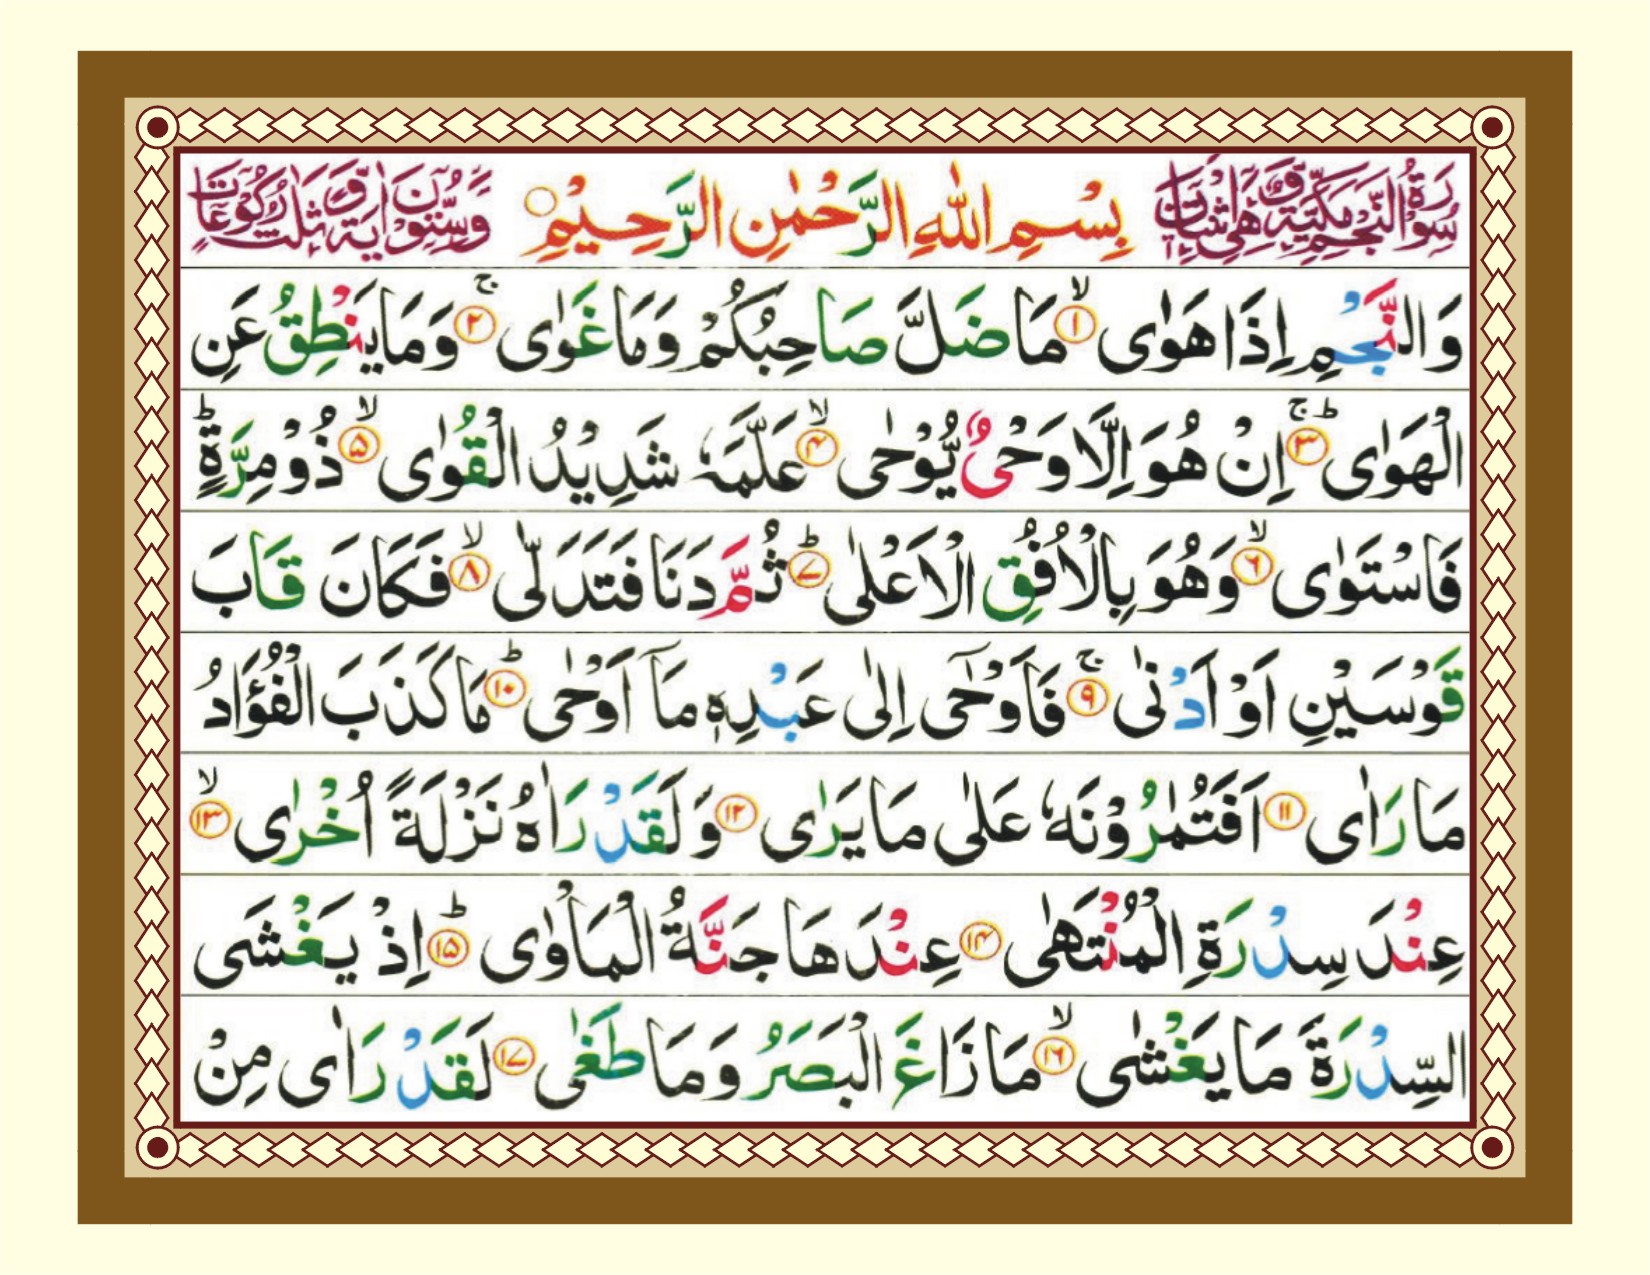 سُوْرَةُ النَّجْمِ مَكِّيَّةٌ وَّهِیَ اثْنَتَانِ بِسْمِ اللّٰهِ الرَّحْمٰنِ الرَّحِيْمِ وَّسِتُّوْنَ اٰيَةً وَّثَلٰثُ رُكُوْعَاتٍ
وَالنَّجْمِ اِذَا هَوٰى ۙ﴿۱﴾ مَا ضَلَّ صَاحِبُكُمْ وَمَا غَوٰى ۚ﴿۲﴾ وَمَا يَنْطِقُ عَنِ
الْهَوٰى ؕۚ﴿۳﴾ اِنْ هُوَ اِلَّا وَحْىٌ يُّوْحٰى ۙ﴿۴﴾ عَلَّمَهٗ شَدِيْدُ الْقُوٰى ۙ﴿۵﴾ ذُوْ مِرَّةٍ ؕ
فَاسْتَوٰى ۙ﴿۶﴾ وَهُوَ بِالْاُفُقِ الْاَعْلٰى ؕ﴿۷﴾ ثُمَّ دَنَا فَتَدَلّٰى ۙ﴿۸﴾ فَكَانَ قَابَ
قَوْسَيْنِ اَوْ اَدْنٰى ۚ﴿۹﴾ فَاَوْحٰٓى اِلٰى عَبْدِهٖ مَآ اَوْحٰى ؕ﴿۱۰﴾ مَا كَذَبَ الْفُؤَادُ
مَا رَاٰى ﴿۱۱﴾ اَفَتُمٰرُوْنَهٗ عَلٰى مَا يَرٰى ﴿۱۲﴾ وَلَقَدْ رَاٰهُ نَزْلَةً اُخْرٰى ۙ﴿۱۳﴾
عِنْدَ سِدْرَةِ الْمُنْتَهٰى ﴿۱۴﴾ عِنْدَهَا جَنَّةُ الْمَاْوٰى ؕ﴿۱۵﴾ اِذْ يَغْشَى
السِّدْرَةَ مَا يَغْشٰى ۙ﴿۱۶﴾ مَا زَاغَ الْبَصَرُ وَمَا طَغٰى ﴿۱۷﴾ لَقَدْ رَاٰى مِنْ